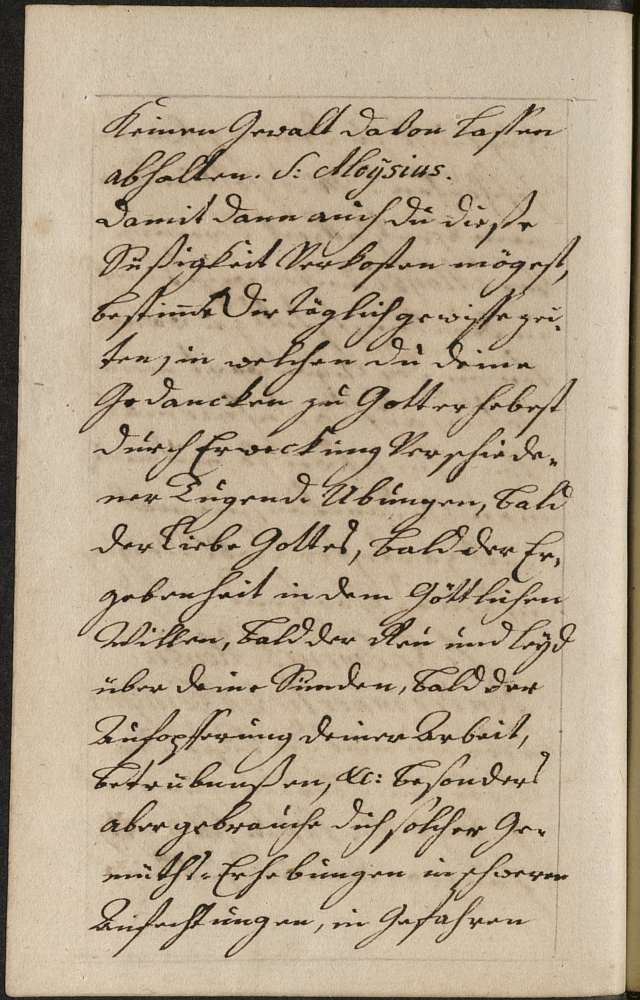 Keinen Gewalt davon lassen
abhalten. S: Aloÿsius.
Damit dann auch du dieße
Süßigkeit Verkosten mögest,
bestim̄e Dir täglich gewisse zei-
ten, in welchen du deine
Gedancken zu Gott erhebest
durch Erweckung Verschiede-
ner Tugend-Ubungen, bald
der Liebe Gottes, bald der Er-
gebenheit in dem Göttlichen
Willen, bald der Reü und leÿd
über deine Sünden, bald der
Aufopfferung deiner Arbeit,
betrübnußen, &c: besonders
aber gebrauche dich solcher Ge-
müths-Erhebungen in schweren
Anfechtungen, in Gefahren